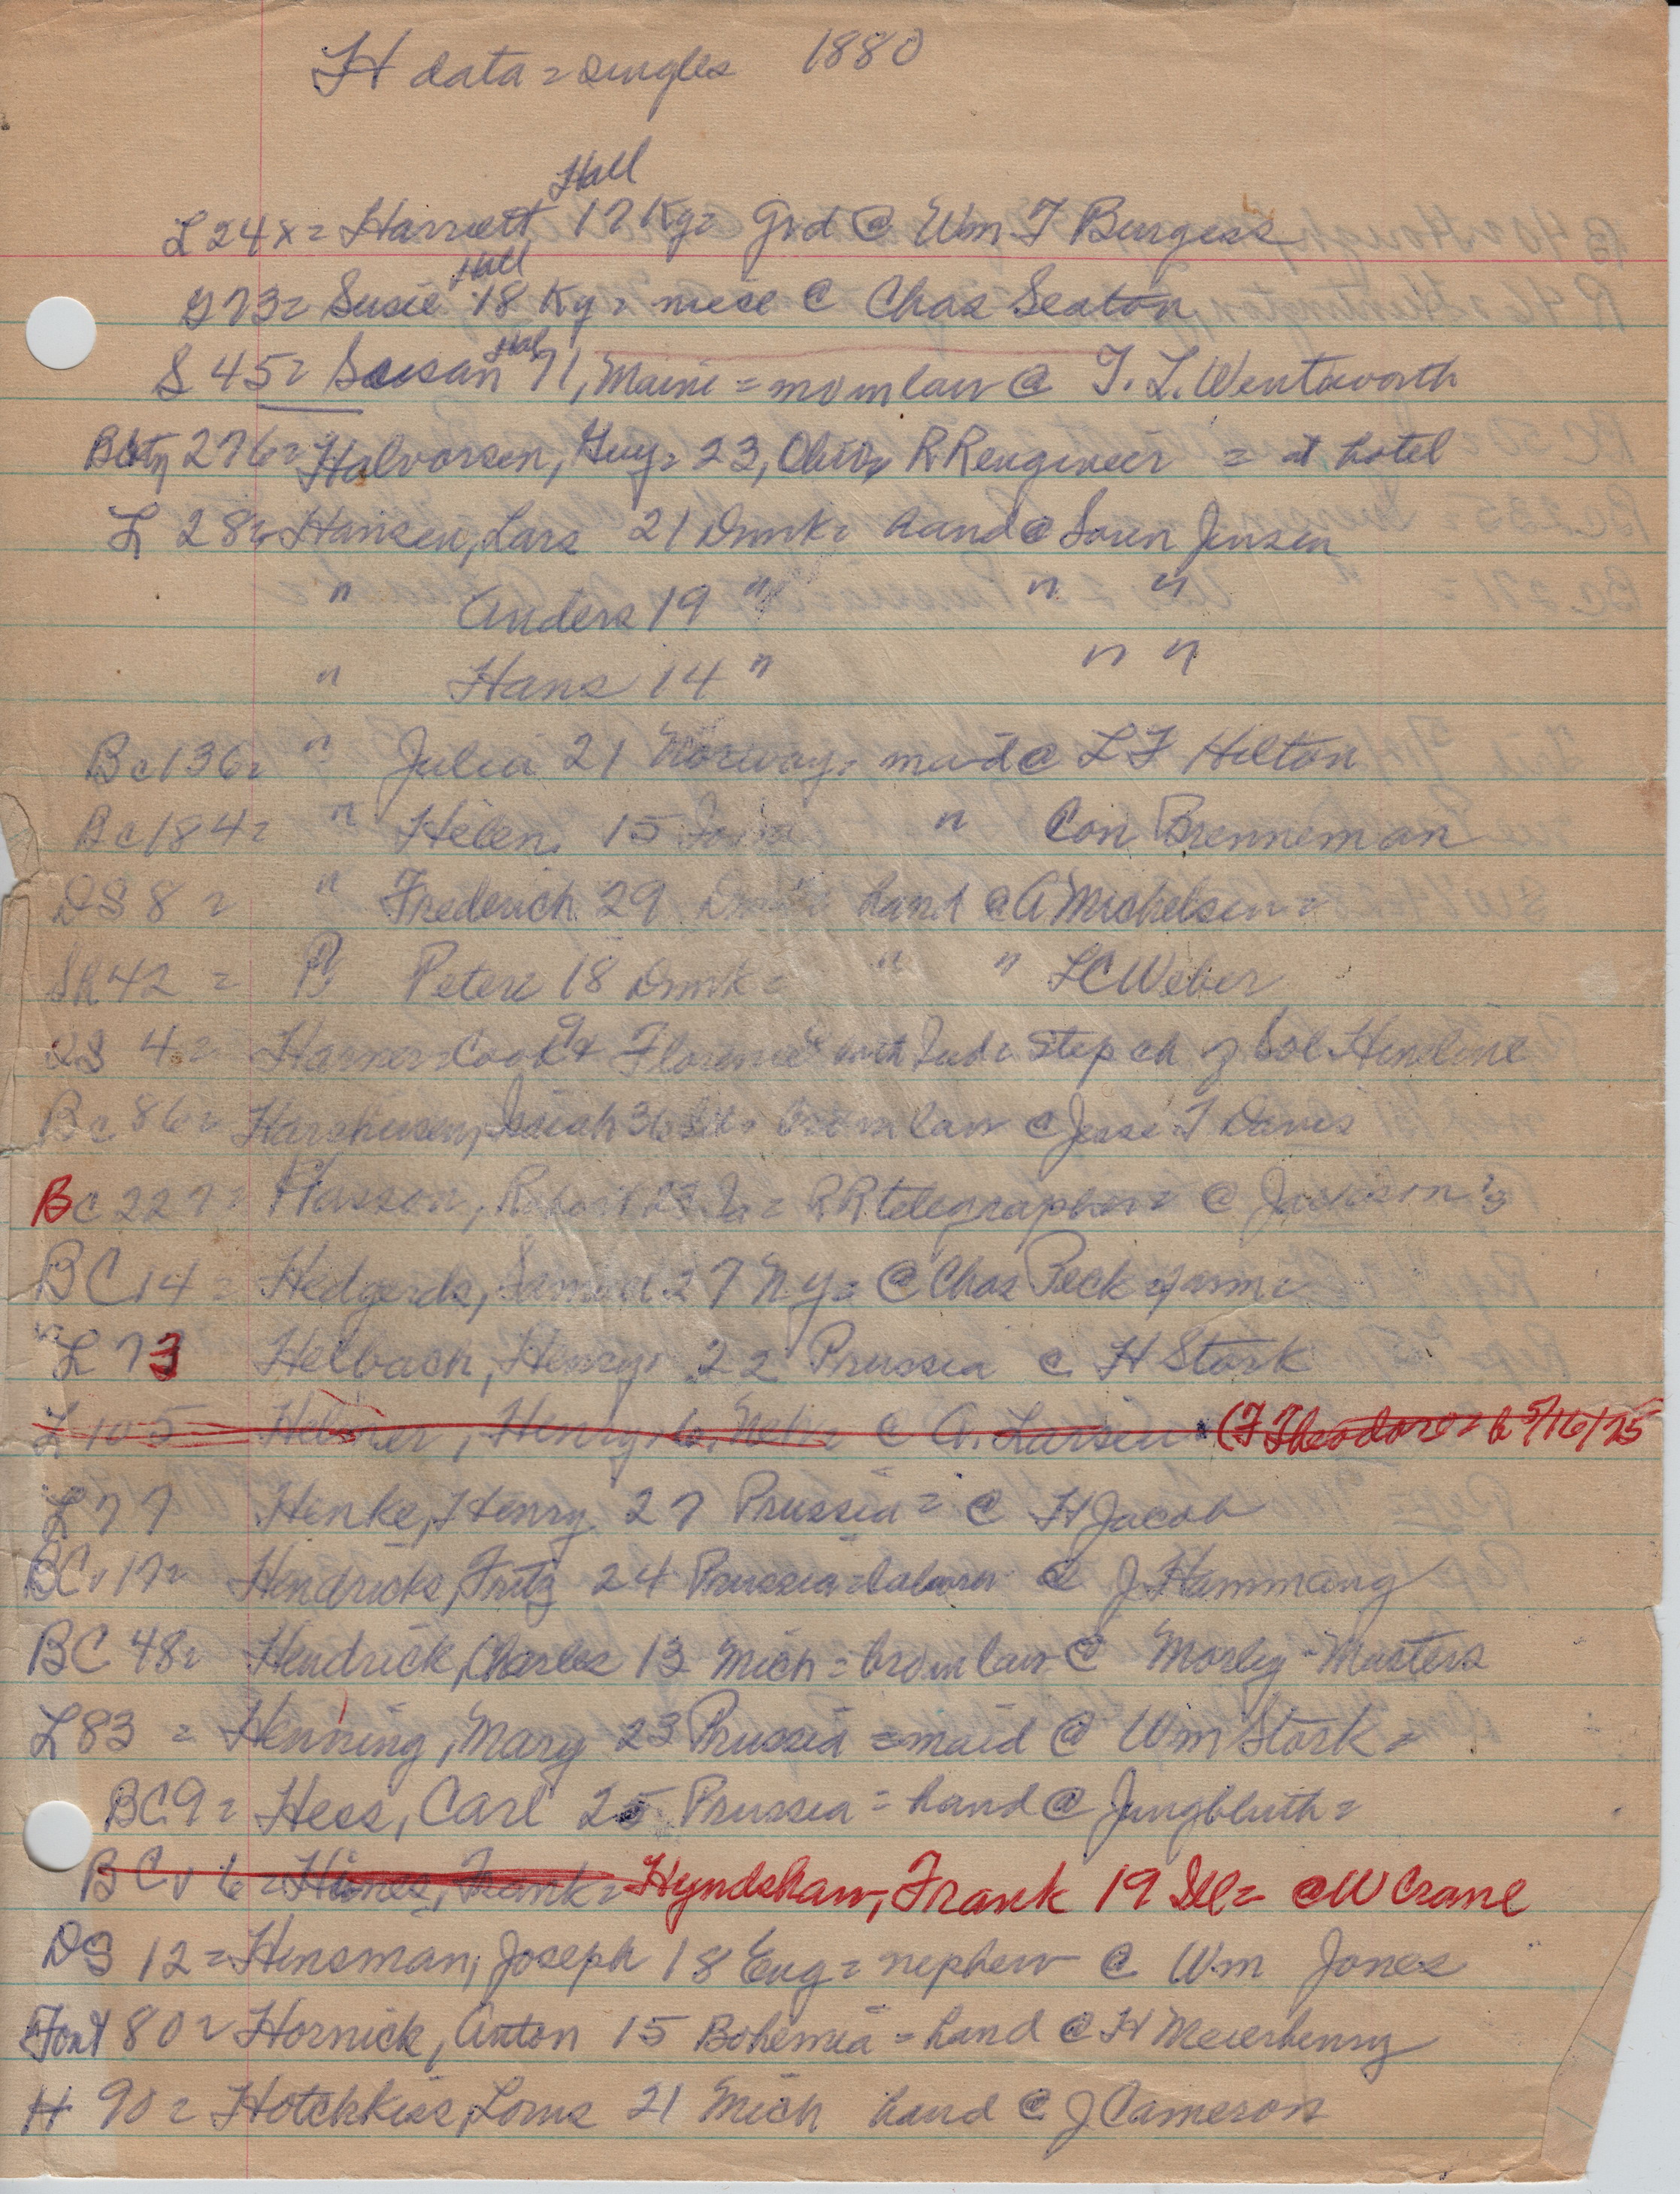 H data = singles 1880
Hall
L 24 x = Harriett 17 Ky = Grd @ Wm F Burgess
Hall
G 73 = Susie 18 Ky = niece @ Chas Seaton
Hall
S 45 = Susan 71, Maine = mo in law @ T. L. Wentworth
276 = Halvorsen, Guy = 23, Ohio, RR engineer = at hotel
L 28 = Hansen, Lars 21 Dnmk = hand @ Soren Jensen
" Anders 19 " " "
" Hans 14 " " "
Bc 136 = " Julia 21 Norway = maid @ L F Hilton
Bc 184 = " Helen 15 Iowa " Con Brenneman
DS 8 = " Frederich 29 hand @ A Michelsen =
42 = " Peter 18 Dnmk = " " L C Weber
DS 4 = Cook 9 & Florence with step ch of Sol Heneline
Bc 86 = 36 bro in law @ Jesse T Davis
BC 227 = Hasson, RR telegrapher = @ Jackson's
BC 14 = Samuel 27 N Y = @ Chas Peck farm =
L 73 Helbach, Henry 22 Prussia @ H Stork
L 105 Henry 6, Neb = @ A. Larsen (F Theodore = b 5/16/75
L 77 Henke, Henry 27 Prussia = @ H Jacob
BCv 17 = Hendricks, Fritz 24 Prussia = laborer @ J Hammang
BC 48 = Hendrick, Charles 13 Mich = bro in law @ Morley Masters
L 83 = Henning, Mary 23 Prussia = maid @ Wm Stork =
BC 9 = Hess, Carl 25 Prussia = hand @ Jungbluth =
BCv 6 = Hines, Frank = Hyndshaw, Frank 19 Ill = @ W Crane
DS 12 = Hinsman, Joseph 18 Eng = nephew @ Wm Jones
Font 80 = Hornick, Anton 15 Bohemia = hand @ H Meierhenry
H 90 = Hotchkiss, 21 Mich hand @ J Cameron